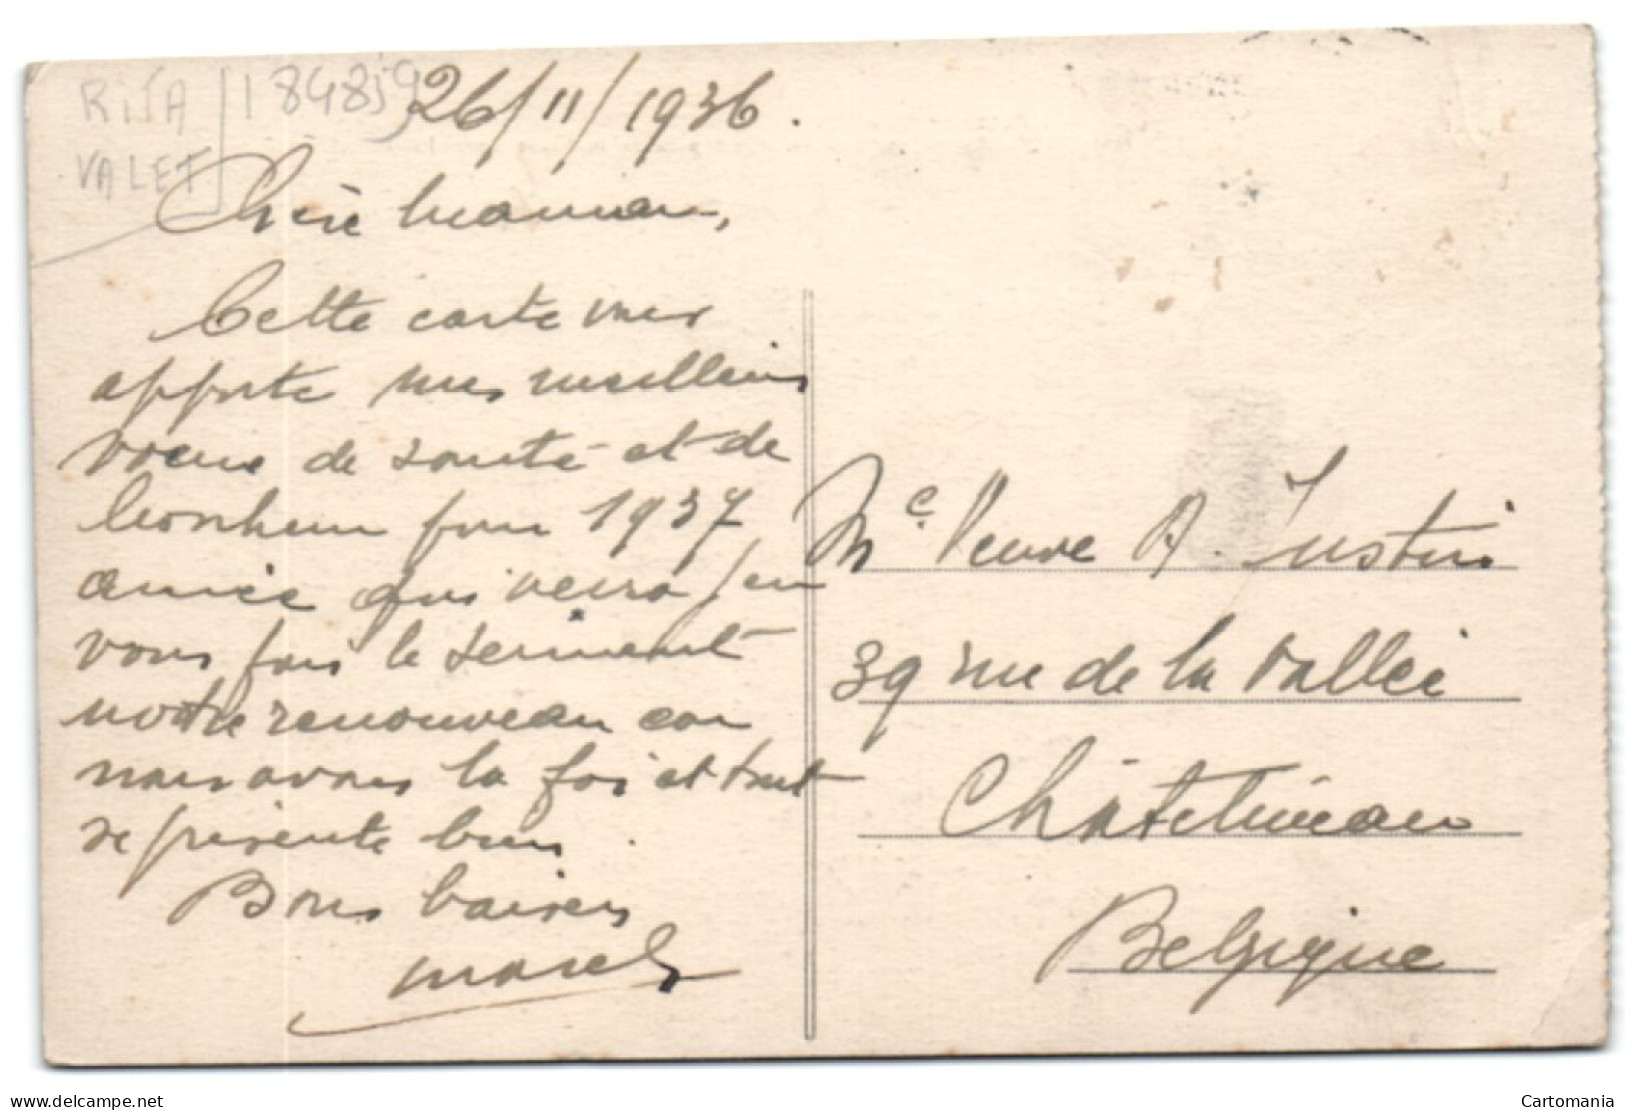 RIJA
VALET
184859
26/11/1936.
Chère maman,
Cette carte vous
apporte mes meilleurs
voeux de santé et de
bonheur pour 1937
année qui verra j'en
vous fais le serment
notre renouveau car
nous avons la foi et tout
se présente bien.
Bons baisers
Marcel
Me Veuve A. Justin
39 rue de la Vallée
Châtelineau
Belgique
www.delcampe.net
Cartomania